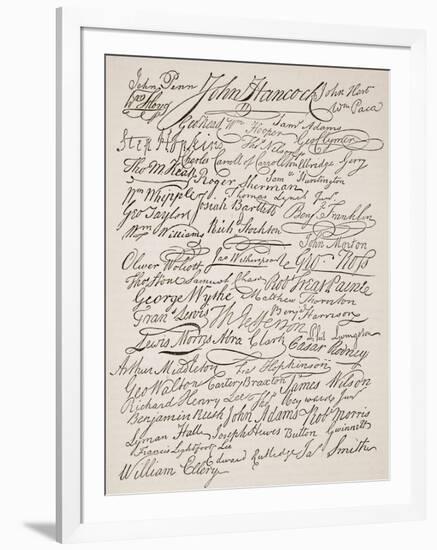 John Penn John Hancock John Hart
Wm Paca
Geo Read Wm Hooper Saml Adams
Step Hopkins Thos Nelson jr Geo Clymer
Charles Carroll of Carrollton Elbridge Gerry
Tho M: Kean Roger Sherman Saml Huntington
Wm Whipple Thomas Lynch Junr
Geo Taylor Josiah Bartlett Benj Franklin
Wm Williams Richd Stockton
John Morton
Oliver Wolcott Jno Witherspoon Geo. Ross
Thos Stone Samuel Chase Robt Treat Paine
George Wythe Matthew Thornton
Fran. Lewis Th Jefferson Benj Harrison
Lewis Morris Abra Clark Phil. Livingston
Cæsar Rodney
Arthur Middleton Fras Hopkinson
Geo Walton Carter Braxton James Wilson
Richard Henry Lee Thos Heyward Junr
Benjamin Rush John Adams Robt Morris
Lyman Hall Joseph Hewes Button Gwinnett
Francis Lightfoot Lee
William Ellery Edward Rutledge Jas Smith